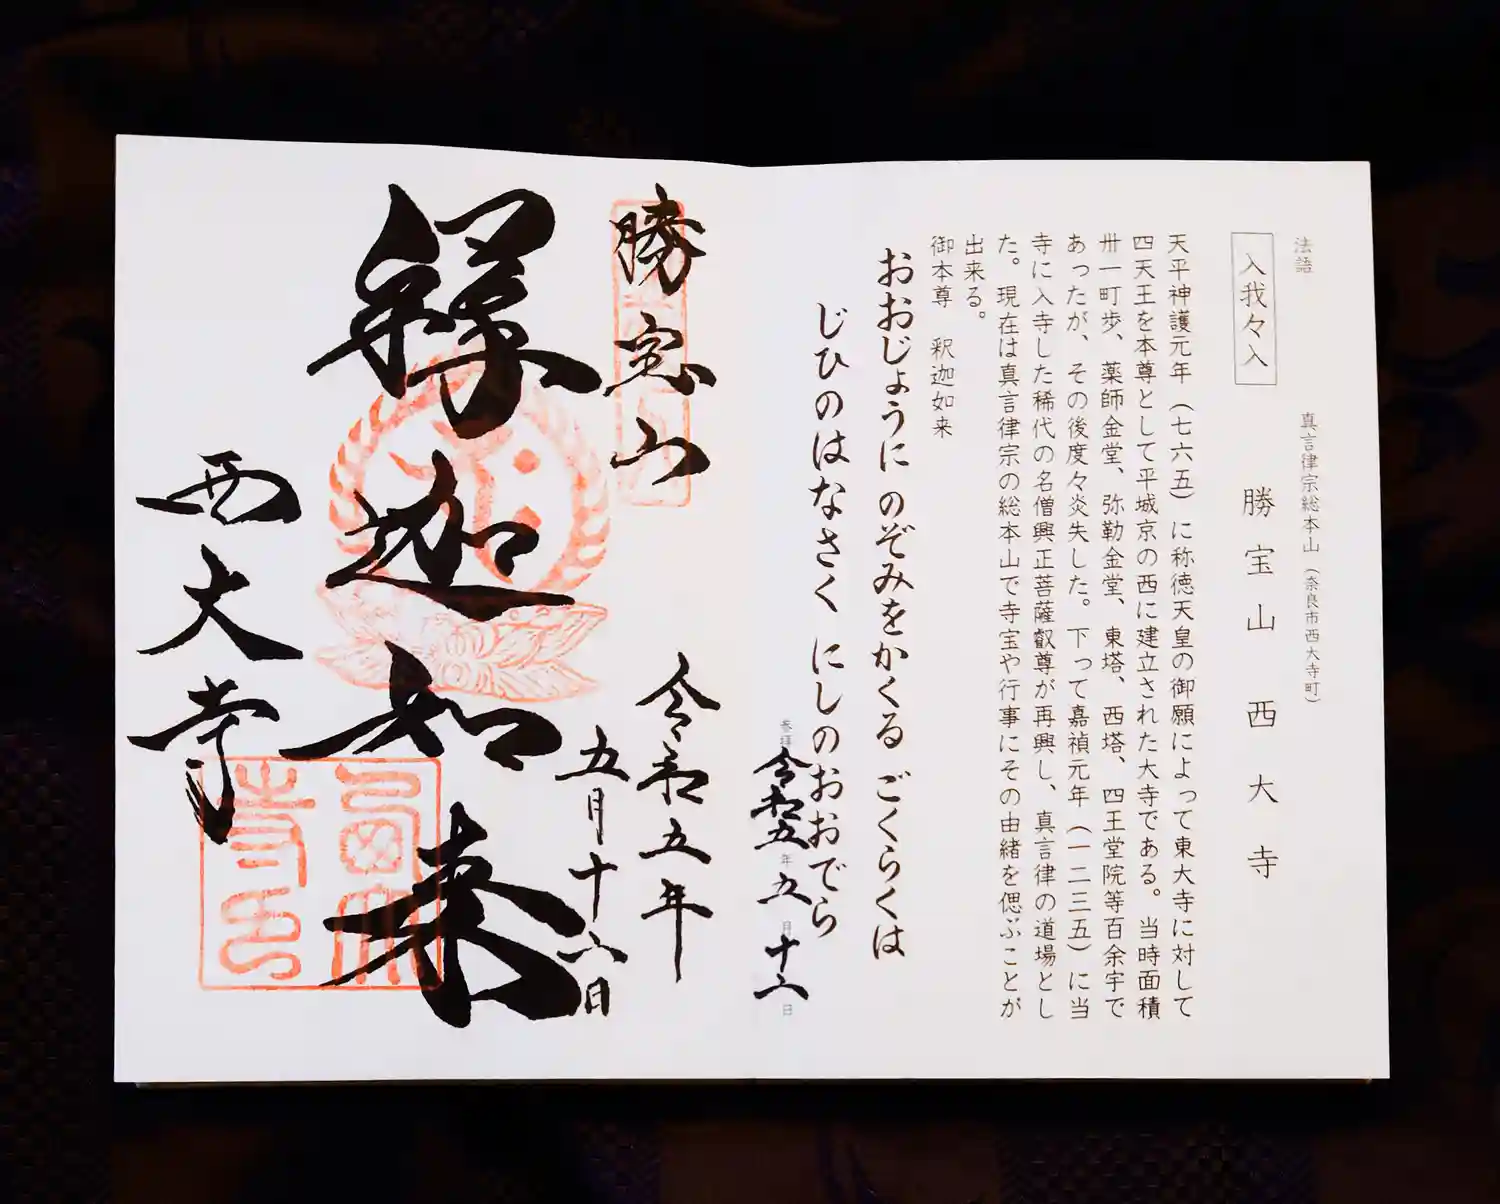 法語
真言律宗総本山（奈良市西大寺町）
入我々入
勝宝山 西大寺
天平神護元年（七六五）に称徳天皇の御願によって東大寺に対して
四天王を本尊として平城京の西に建立された大寺である。当時面積
卅一町歩、薬師金堂、弥勒金堂、東塔、西塔、四王堂院等百余宇で
あったが、その後度々炎失した。下って嘉禎元年（一二三五）に当
寺に入寺した稀代の名僧興正菩薩叡尊が再興し、真言律の道場とし
た。現在は真言律宗の総本山で寺宝や行事にその由緒を偲ぶことが
出来る。
御本尊 釈迦如来
おおじょうに のぞみをかくる ごくらくは
じひのはなさく にしのおおでら
参拝 令和五年 五月十六日
勝宝山
令和五年
五月十六日
釋迦如来
西大寺